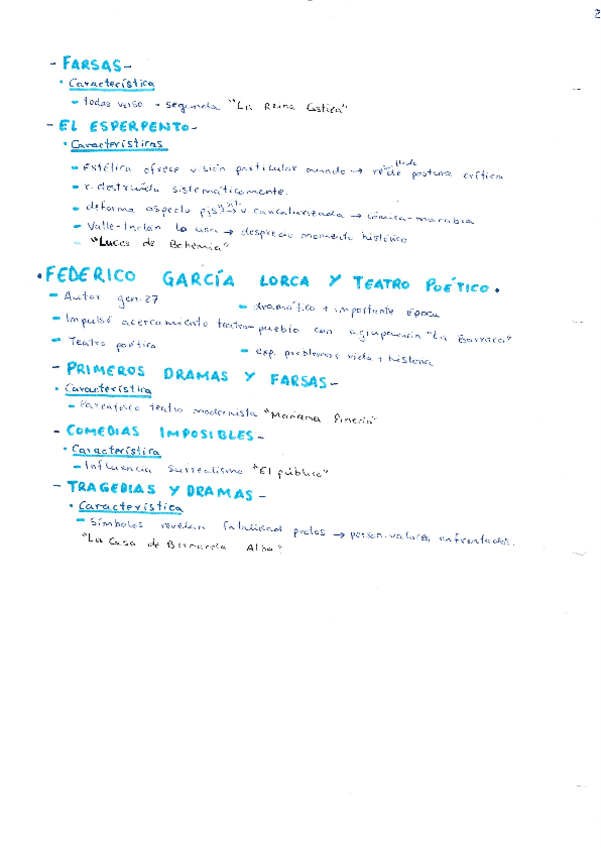 - FARSAS -
• Característica
- todas verso → segunda "La Reina Castiza"
- EL ESPERPENTO -
• Características
- Estética ofrece visión particular mundo → postura crítica
- r. destruida sistemáticamente.
- deforma aspecto v. caricaturizada → cómica-macabra
- Valle-Inclán lo usa → desprecio momento histórico
- "Luces de Bohemia"
• FEDERICO GARCÍA LORCA Y TEATRO POÉTICO.
- Autor gen. 27 - dramático + importante época
- Impulsó acercamiento teatro-pueblo con agrupación "La Barraca"
- Teatro poético - exp. problemas vida + historia
- PRIMEROS DRAMAS Y FARSAS -
• Característica
- Parentesco teatro modernista "Mariana Pineda"
- COMEDIAS IMPOSIBLES -
• Característica
- Influencia surrealismo "El público"
- TRAGEDIAS Y DRAMAS -
• Característica
- Símbolos revelan fatalidad → person. valores enfrentados.
"La Casa de Bernarda Alba"